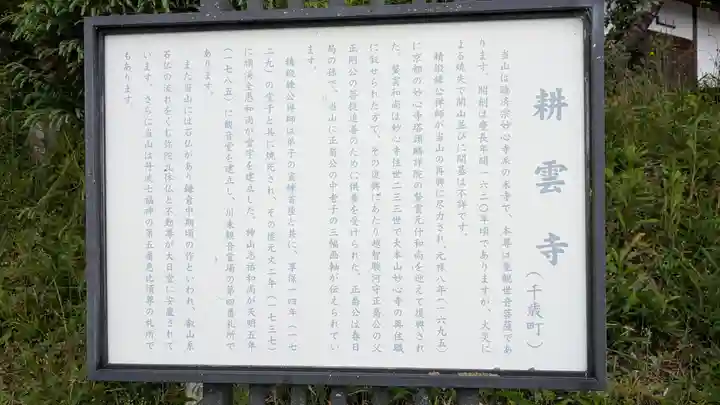 耕雲寺
（千歳町）
当山は臨済宗妙心寺派の末寺で、本尊は聖観世音菩薩であ
ります。開創は慶長年間一六二〇年頃でありますが、火災に
よる焼失で開山並びに開基は不詳です。
積礎錬公禅師が当山の再興に尽力され、元禄八年（一六九五）
に京都の妙心寺塔頭麟祥院の 和尚を迎えて復興され
た。 和尚は妙心寺住世二三三世で大本山妙心寺の再住職
に叙せられた方で、その復興にあたり越智駿河守正島公の父
正剛公の菩提追善のために供養を受けられた。正島公は春日
局の孫で、当山に正島公の中老子の三幅画軸が伝えられてい
ます。
積礎錬公禅師は弟子の 首座と共に、享保十四年（一七
二九）の堂宇と共に焼死され、その後元文二年（一七三七）
に 和尚が堂宇を建立した。神山 和尚が天明五年
（一七八五）に観音堂を建立し、川東観音霊場の第四番札所で
あります。
また当山には石仏があり鎌倉中期頃の作といわれ、叡山系
石仏の流れをくむ弥陀 仏と不動尊が大日堂に安置されて
います。さらに当山は丹波七福神の第五番恵比須尊の札所で
もあります。